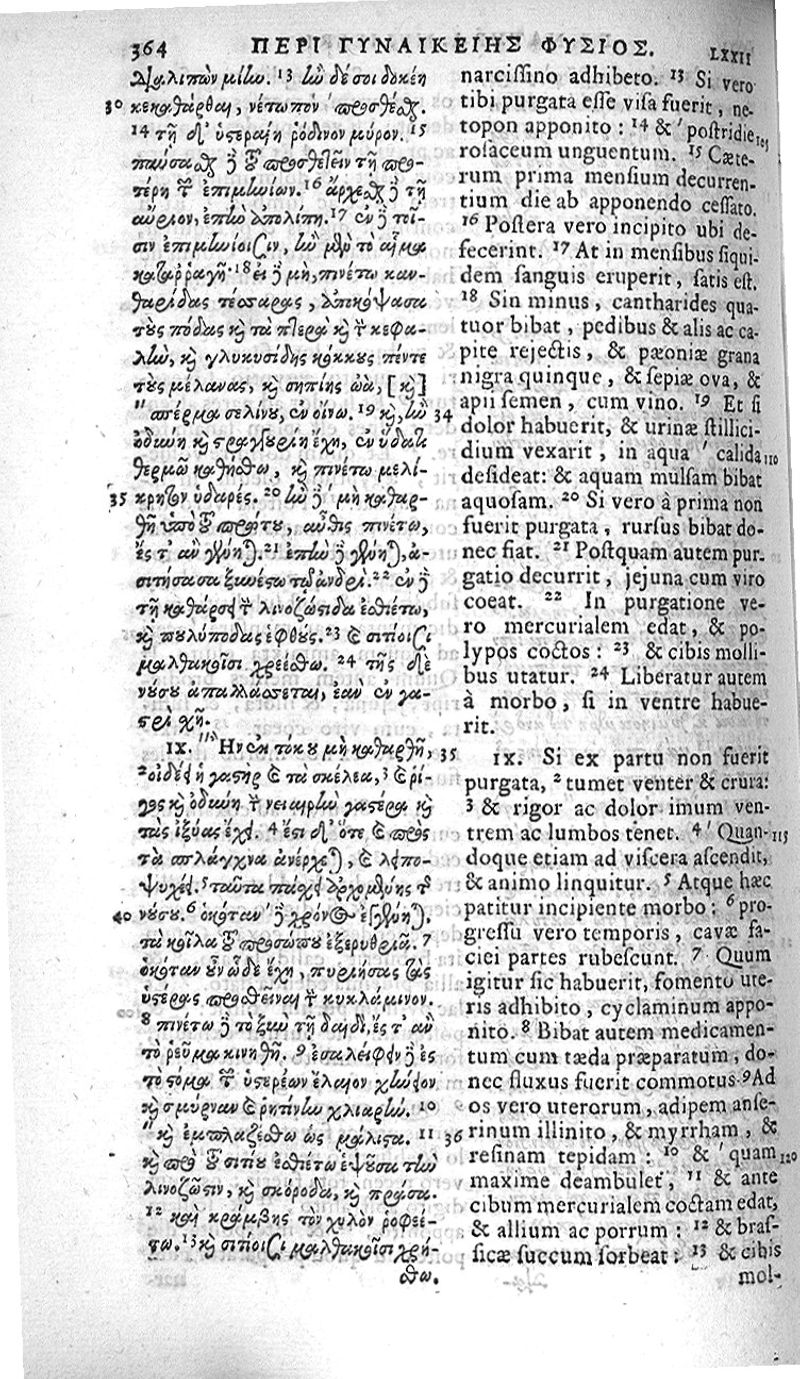 364 ΠΕΡΙ ΓΥΝΑΙΚΕΙΗΣ ΦΥΣΙΟΣ. LXXII
13 ἢν δέ σοι δοκέῃ
30 κεκαθάρθαι, νέτωπον προσθέσθω.
14 τῇ δ' ὑστεραίῃ ῥόδινον μύρον. 15
παύσασθαι δὲ τοῦ προσθετεῖν τῇ προ-
τέρῃ τῶν ἐπιμηνίων. 16 ἄρχεσθαι δὲ τῇ
αὔριον, ἐπὴν ἀπολίπῃ. 17 ἐν δὲ τοῖ-
σιν ἐπιμηνίοισιν, ἢν μὲν τὸ αἷμα
καταῤῥαγῇ· 18 εἰ δὲ μὴ, πινέτω καν-
θαρίδας τέσσαρας, ἀποκόψασα
τοὺς πόδας καὶ τὰ πτερὰ καὶ τὴν κεφα-
λὴν, καὶ γλυκυσίδης κόκκους πέντε
τοὺς μέλανας, καὶ σηπίης ὠὰ, [καὶ]
" σπέρμα σελίνου, ἐν οἴνῳ. 19 καὶ, ἢν 34
ὀδύνη καὶ στραγγουρίη ἔχῃ, ἐν ὕδατι
θερμῷ καθήσθω, καὶ πινέτω μελί-
35 κρητον ὑδαρές. 20 ἢν δὲ ' μὴ καθαρ-
θῇ ὑπὸ τοῦ πρώτου, αὖθις πινέτω,
ἔς τ' ἂν γένηται. 21 ἐπὴν δὲ γένηται, ἀ-
σιτήσασα ξυνέστω τῷ ἀνδρί. 22 ἐν δὲ
τῇ καθάρσει τὴν λινοζώστιδα ἐσθιέτω,
καὶ πουλύποδας ἑφθούς. 23 καὶ σιτίοισι
μαλθακοῖσι χρεέσθω. 24 τῆς δὲ
νούσου ἀπαλλάσσεται, ἐὰν ἐν γα-
στρὶ
IX. "' Ἢν ἐκ τόκου μὴ καθαρθῇ, 35
2 οἰδέει ἡ γαστὴρ καὶ τὰ σκέλεα, 3 καὶ ῥῖ-
γος καὶ ὀδύνη τὴν νειαιρὴν γαστέρα καὶ
τὰς ἰξύας ἔχει. 4 ἔστι δ' ὅτε καὶ πρὸς
τὰ σπλάγχνα ἀνέρχεται, καὶ λειπο-
ψυχέει. 5 ταῦτα πάσχει ἀρχομένης τῆς
40 νούσου. 6 ὁκόταν δὲ χρόνος ἐγγένηται,
τὰ κοῖλα τοῦ προσώπου ἐξερυθριᾷ. 7
ὁκόταν οὖν ὧδε ἔχῃ, πυριήσας τὰς
ὑστέρας προσθεῖναι τὴν κυκλάμινον.
8 πινέτω δὲ τὸ ξὺν τῇ δαιδὶ, ἔς τ' ἂν
τὸ ῥεῦμα κινηθῇ. 9 ἐσαλείφειν δὲ ἐς
τὸ στόμα τῶν ὑστερέων ἔλαιον χήνειον
καὶ σμύρναν καὶ ῥητίνην χλιαρήν. 10
" καὶ ἐμπλαζέσθω ὡς μάλιστα. 11 36
καὶ πρὸ τοῦ σιτίου ἐσθιέτω ἑψῶσα τὴν
λινοζῶστιν, καὶ σκόροδα, καὶ πράσα.
12 καὶ κράμβης τὸν χυλὸν ῥοφεέ-
τω. 13 καὶ σιτίοισι μαλθακοῖσι χρή-
σθω.
narcissino adhibeto. 13 Si vero
tibi purgata esse visa fuerit, ne-
topon apponito: 14 & ' postridie 105
rosaceum unguentum. 15 Cæte-
rum prima mensium decurren-
tium die ab apponendo cessato.
16 Postera vero incipito ubi de-
fecerint. 17 At in mensibus siqui-
dem sanguis eruperit, satis est.
18 Sin minus, cantharides qua-
tuor bibat, pedibus & alis ac ca-
pite rejectis, & pæoniæ grana
nigra quinque, & sepiæ ova, &
apii semen, cum vino. 19 Et si
dolor habuerit, & urinæ stillici-
dium vexarit, in aqua ' calida 110
desideat: & aquam mulsam bibat
aquosam. 20 Si vero à prima non
fuerit purgata, rursus bibat do-
nec fiat. 21 Postquam autem pur-
gatio decurrit, jejuna cum viro
coeat. 22 In purgatione ve-
ro mercurialem edat, & po-
lypos coctos: 23 & cibis molli-
bus utatur. 24 Liberatur autem
à morbo, si in ventre habue-
rit.
IX. Si ex partu non fuerit
purgata, 2 tumet venter & crura:
3 & rigor ac dolor imum ven-
trem ac lumbos tenet. 4 ' Quan- 115
doque etiam ad viscera ascendit,
& animo linquitur. 5 Atque hæc
patitur incipiente morbo: 6 pro-
gressu vero temporis, cavæ fa-
ciei partes rubescunt. 7 Quum
igitur sic habuerit, fomento ute-
ris adhibito, cyclaminum appo-
nito. 8 Bibat autem medicamen-
tum cum tæda præparatum, do-
nec fluxus fuerit commotus. 9 Ad
os vero uterorum, adipem anse-
rinum illinito, & myrrham, &
resinam tepidam: 10 & ' quam 120
maxime deambulet, 11 & ante
cibum mercurialem coctam edat,
& allium ac porrum: 12 & bras-
sicæ succum sorbeat: 13 & cibis
mol-